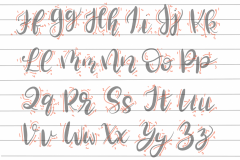 Ff Gg Hh Ii Jj Kk
Ll Mm Nn Oo Pp
Qq Rr Ss Tt Uu
Vv Ww Xx Yy Zz